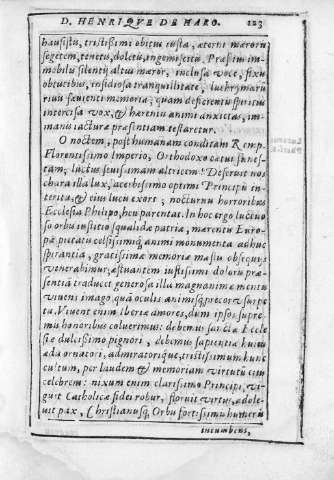 D. HENRIQVE DE HARO. 123
hausistu, tristissimi obitus iusta, æterni mæroris
segetem, tenetis, doletis, ingemiscetis. Præsius im-
mobilis silentij altus mæror, inclusa voce, fixis
obtutibus, insidiosa tranquillitate, luchrymarū
rius sæuientis memoria; quam deficientis spiritus
intercisa vox, & hærentis animi anxietas, im-
manis iacturæ præsentiam testaretur.
O noctem, post humanam conditam Remp.
Florentissimo Imperio, Orthodoxo cætui funes-
tam, luctus sæuissimam altricem! Deseruit nos
chara illa lux, acerbissimo optimi Principis in-
teritu, & eius lucu exorti, nocturnis horroribus
Ecclesia Philipo, heu parentat. In hoc ergo luctuo
so orbis iustitio squalida patria, mærentis Euro-
pæ pietatis celsissimiq, animi monumenta adhuc
spirantia, gratissimæ memoriæ mæstis obsequijs
venerabimur; æstuantem iustissimi doloris præ-
sentia traducet generosa illa magnanimæ mentis
viuens imago, qua oculis animisq, precor usurpe
ta. Viuent enim liberius amores, dum ipsos supre-
mis honoribus coluerimus: debemus sanctæ Eccle
siæ dulcissimo pignori, debemus sapientiæ huius
æda ornatori, admiratorique, tristissimum hunc
cultum, per laudem & memoriam virtutū eius
celebrem: nixum enim clarissimo Principi, vi-
guit Catholicæ fidei robur, floruit virtus, adole-
uit pax, Christianusq, Orbis fortissimis humeris
incumbens,